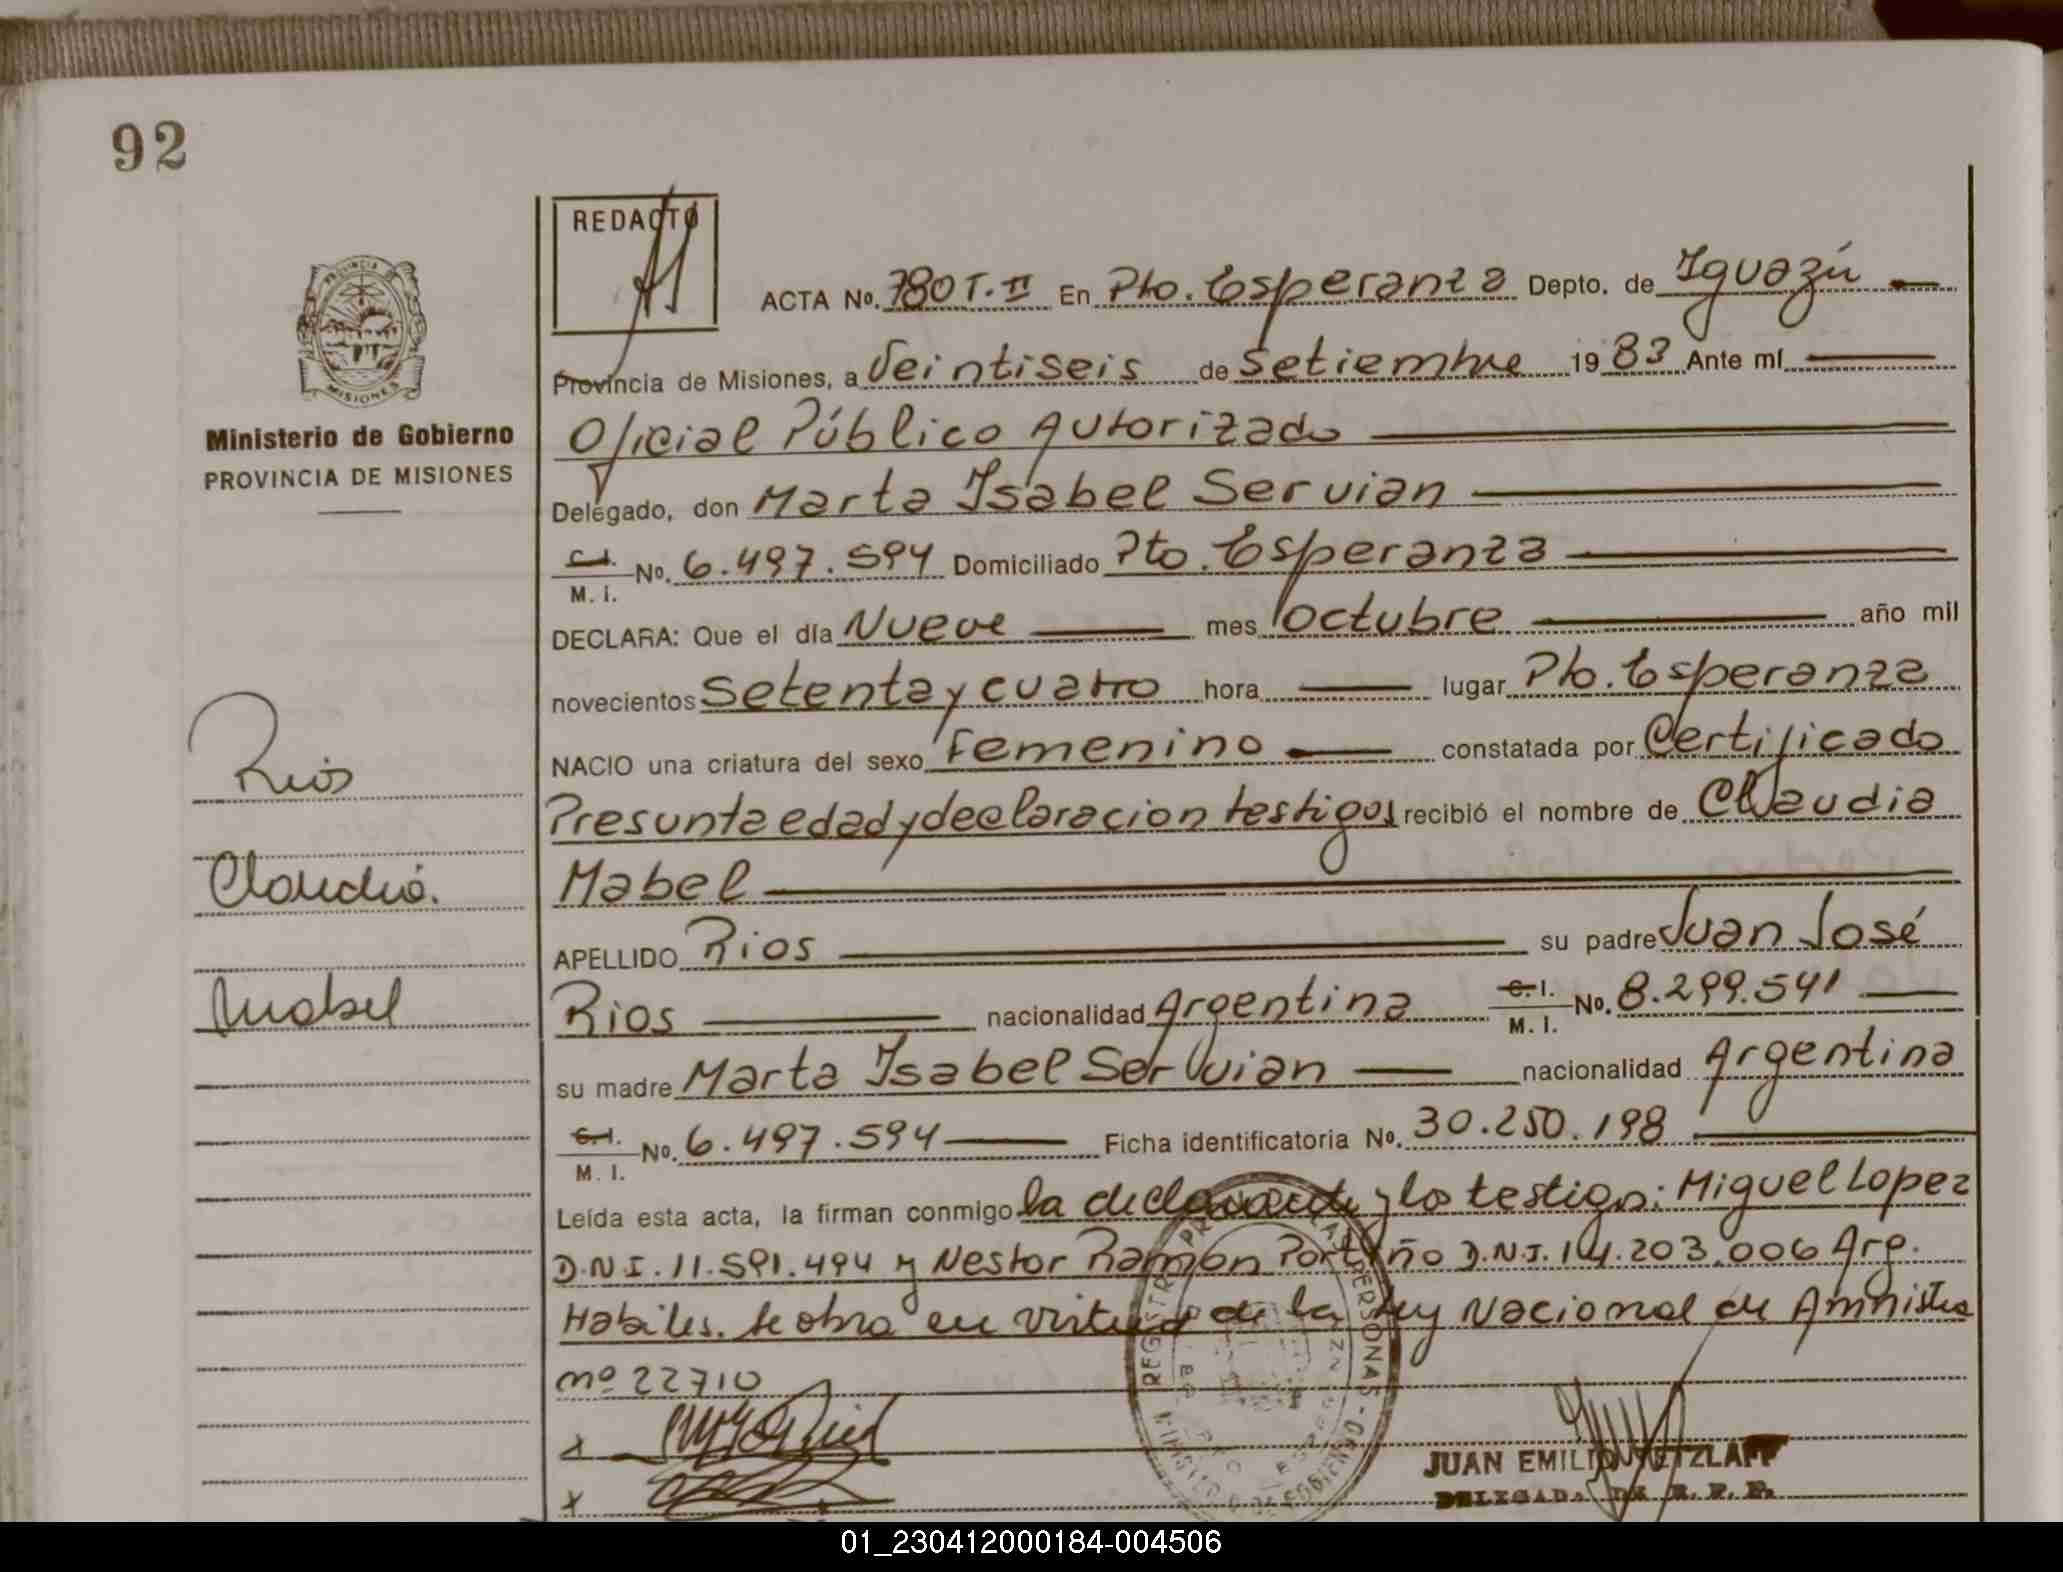 92
REDACTO
PROVINCIA DE
MISIONES
Ministerio de Gobierno
PROVINCIA DE MISIONES
Rios
Claudia.
Mabel
ACTA No. 780 T. II En Pto. Esperanza Depto. de Iguazú
Provincia de Misiones, a Veintiseis de Setiembre 1983 Ante mí
Oficial Público Autorizado
Delegado, don Marta Isabel Servian
C.I. M. I. No. 6.497.594 Domiciliado Pto. Esperanza
DECLARA: Que el día Nueve mes octubre año mil
novecientos Setenta y cuatro hora lugar Pto. Esperanza
NACIO una criatura del sexo Femenino constatada por Certificado
Presunta edad y declaracion testigos recibió el nombre de Claudia
Mabel
APELLIDO Rios su padre Juan José
Rios nacionalidad Argentina C.I. M. I. No. 8.299.541
su madre Marta Isabel Servian nacionalidad Argentina
C.I. M. I. No. 6.497.594 Ficha identificatoria No. 30.250.198
Leída esta acta, la firman conmigo la declarante y los testigos: Miguel Lopez
D.N.I. 11.591.494 y Nestor Ramon Portaño D.N.I. 14.203.006 Arg.
Habiles. Se obra en virtud de la Ley Nacional de Amnistia
nº 22710
JUAN EMILIO
DELEGADO DE R. P. P.
01_230412000184-004506